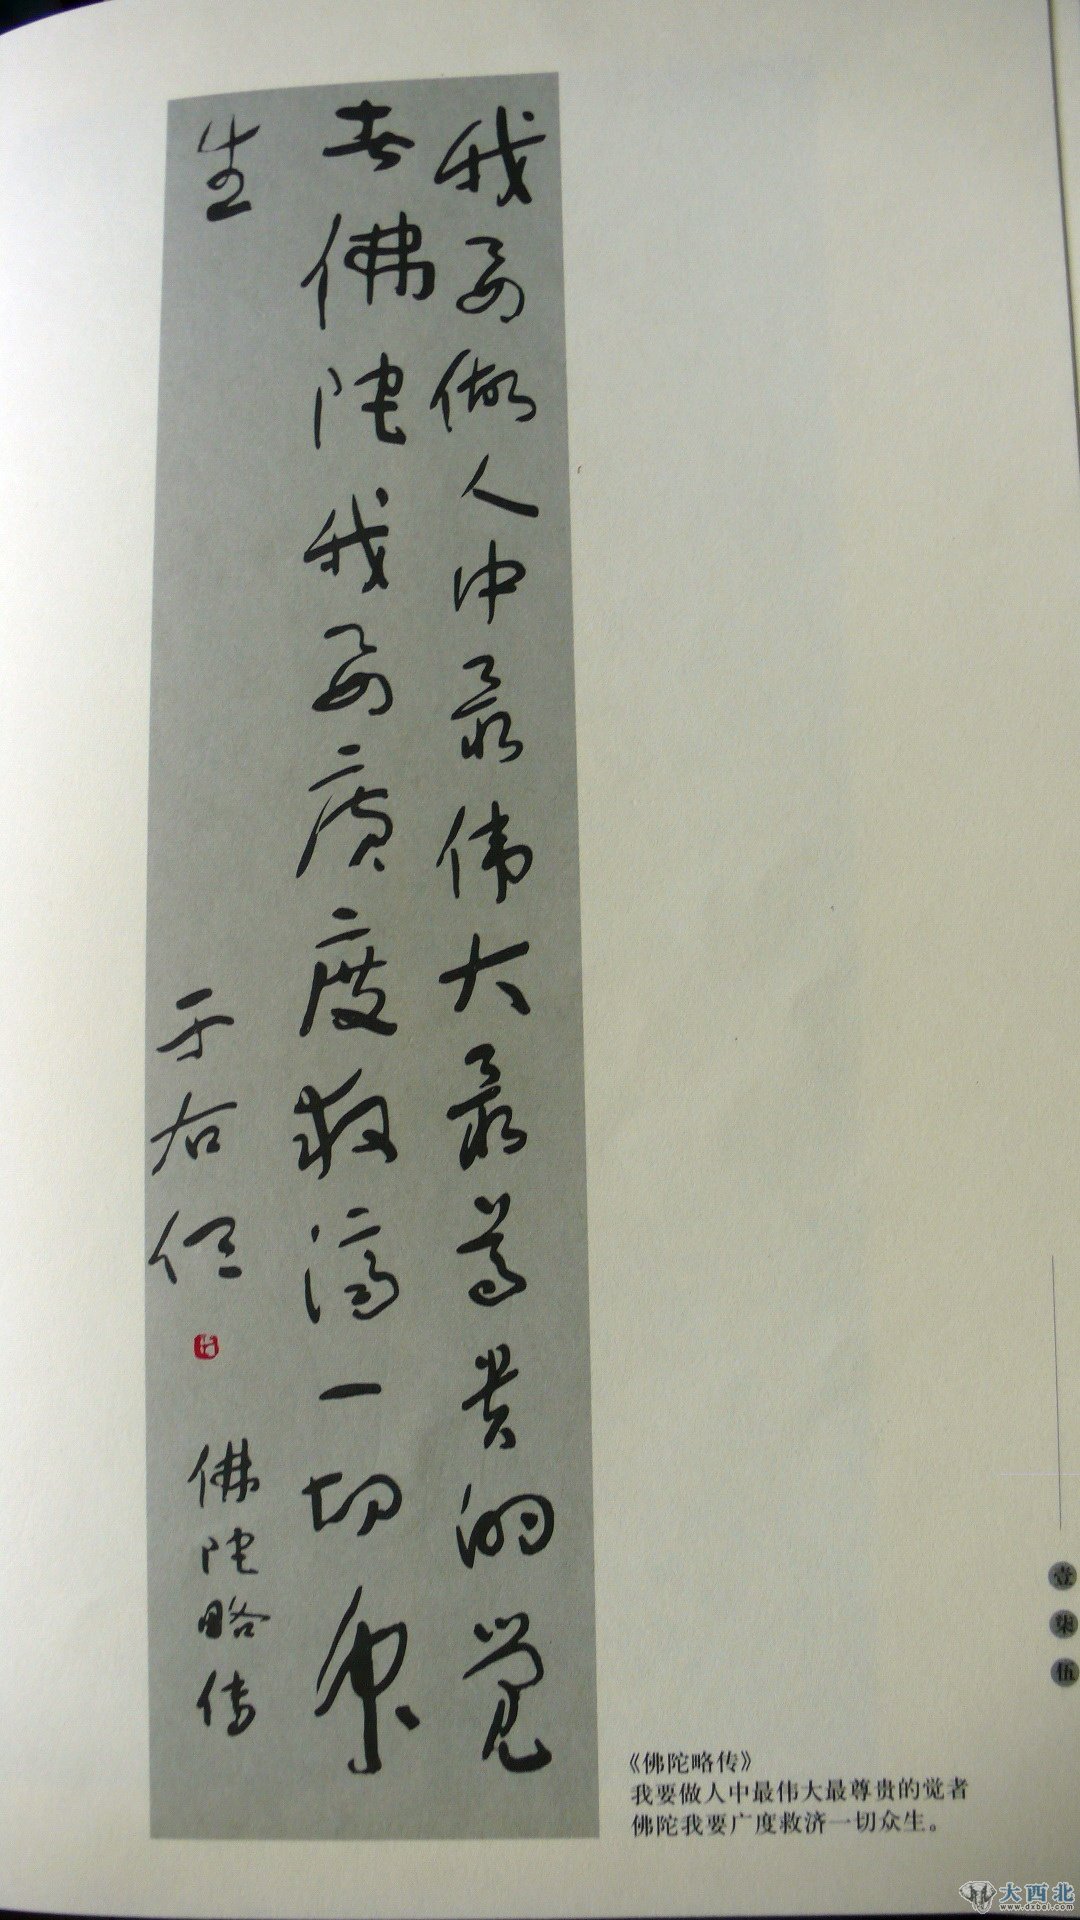 我要做人中最伟大最尊贵的觉
者佛陀我要广度救济一切众
生
于右任
佛陀略传
《佛陀略传》
我要做人中最伟大最尊贵的觉者
佛陀我要广度救济一切众生。
壹柒伍
大西北
www.dxbei.com